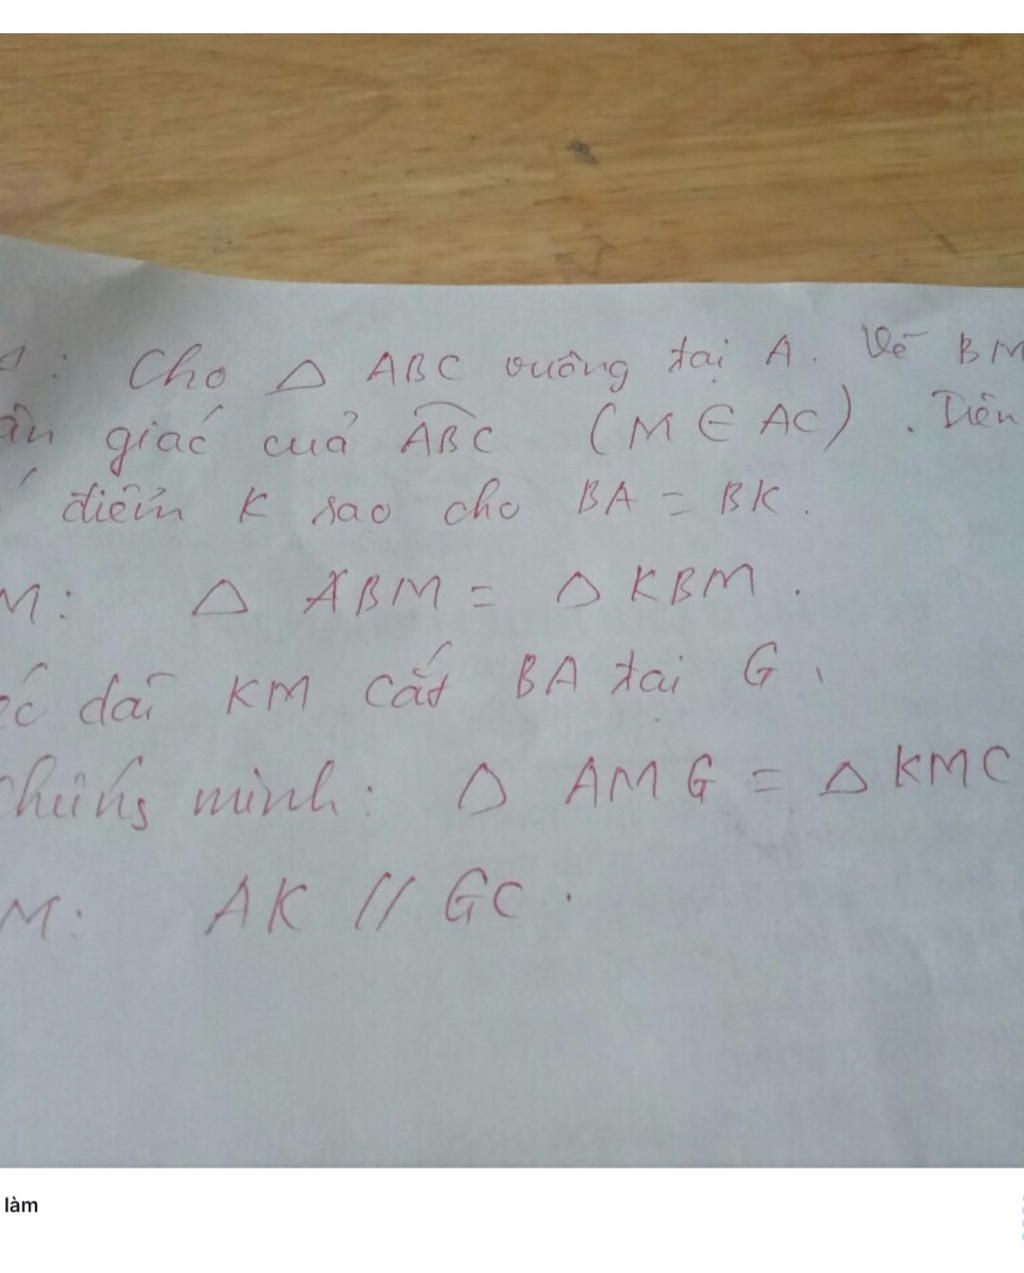 1: Cho △ ABC vuông tại A. Vẽ BM
ân giác của ABC (M ∈ AC). Trên
điểm K sao cho BA = BK.
M: △ ABM = △ KBM.
dài KM cắt BA tại G.
Chứng minh: △ AMG = △ KMC
M: AK // GC.
làm